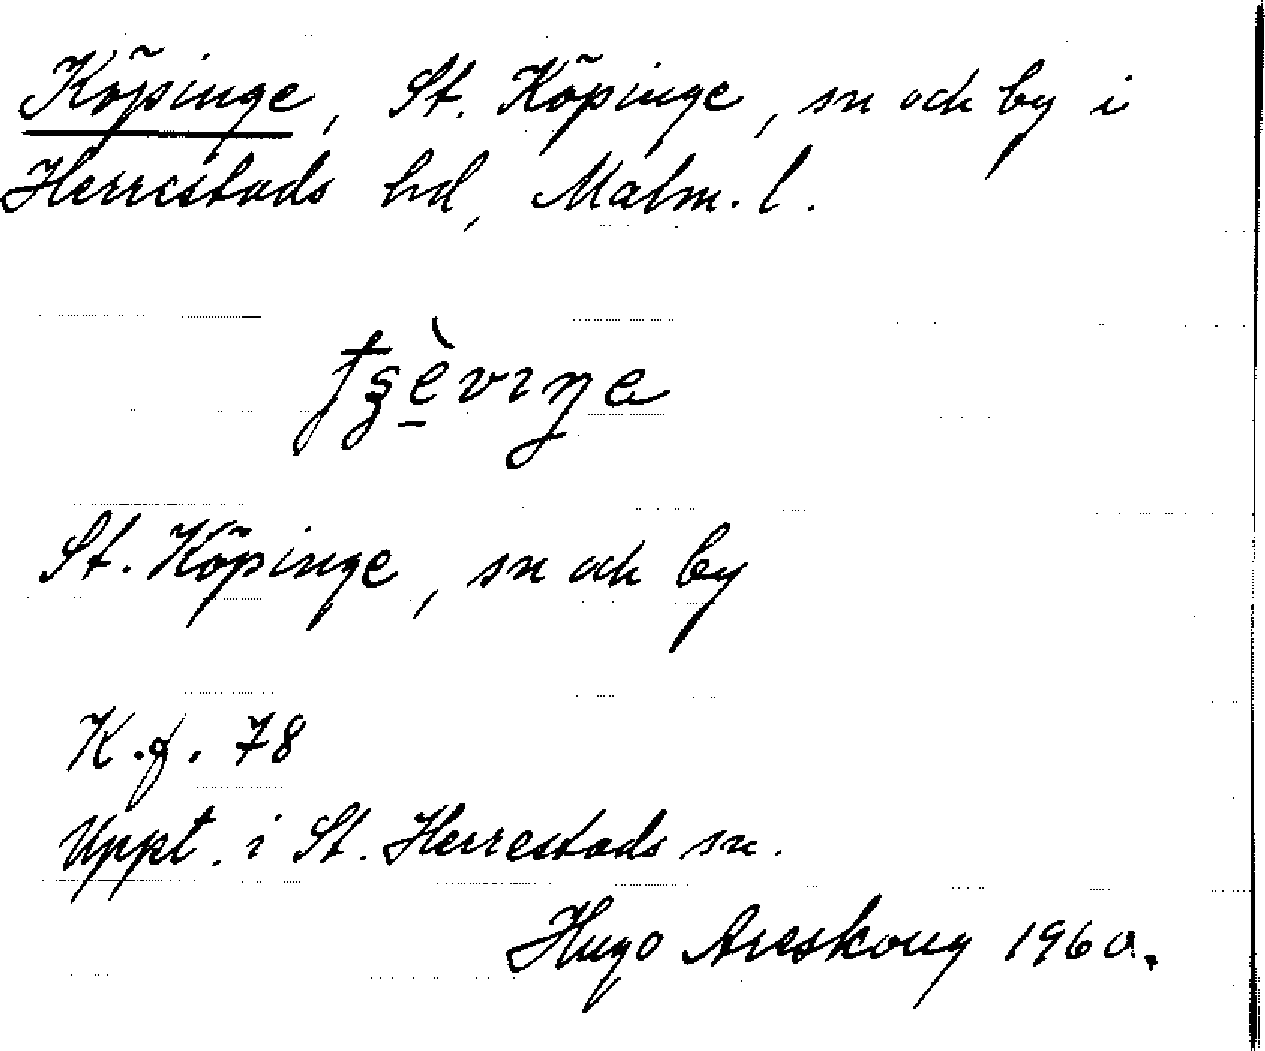 Köpinge, St. Köpinge, sn och by i
Herrestads hd, Malm. l.
St. Köpinge, sn och by
K.f. 78
Uppt. i St. Herrestads sn.
Hugo Areskoug 1960.